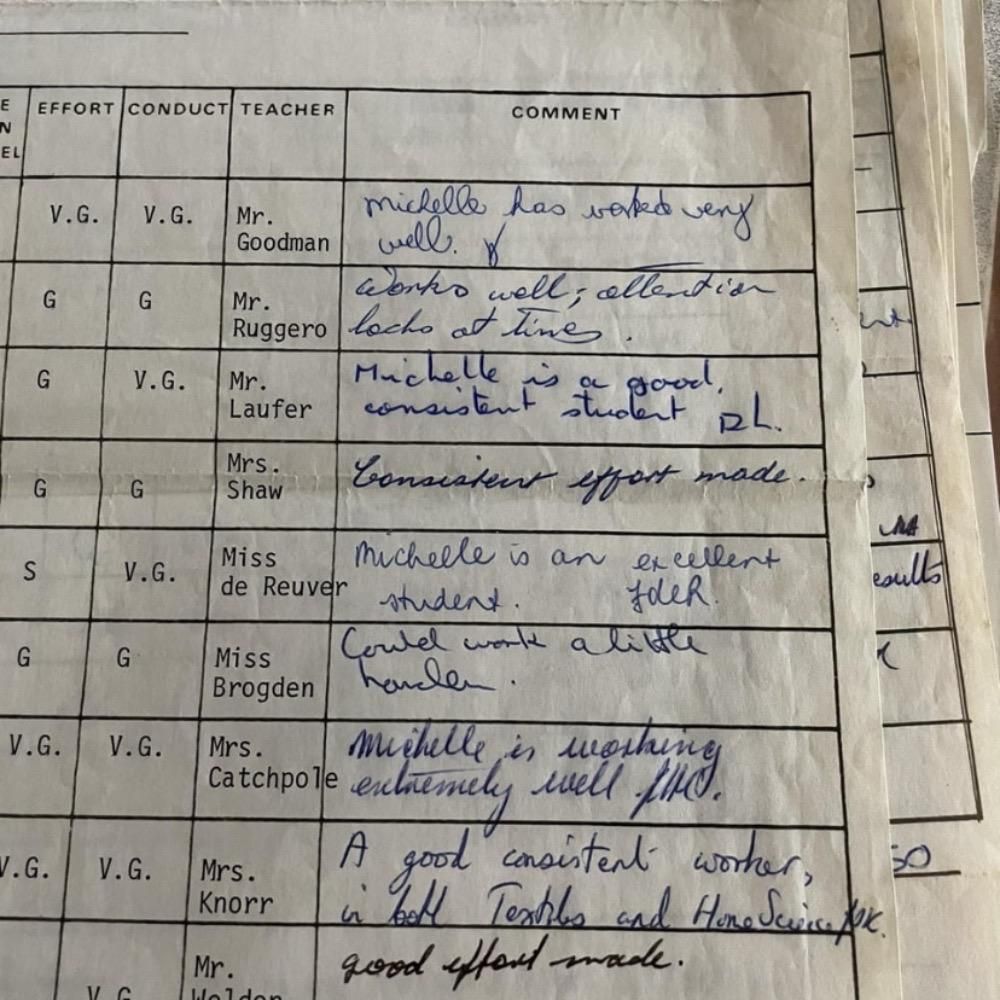 E
N
EL
EFFORT CONDUCT TEACHER COMMENT
V.G. V.G. Mr. Goodman
michelle has worked very
well.
G G Mr. Ruggero
Works well; attention
lacks at times.
G V.G. Mr. Laufer
Michelle is a good,
consistent student RL.
G G Mrs. Shaw
Consistent effort made.
S V.G. Miss de Reuver
Michelle is an excellent
student. JdeR.
G G Miss Brogden
Could work a little
harder.
V.G. V.G. Mrs. Catchpole
Michelle is working
extremely well
V.G. V.G. Mrs. Knorr
A good consistent worker,
in both Textiles and Home Science
V.G. Mr. Weldon
good effort made.
esults
50